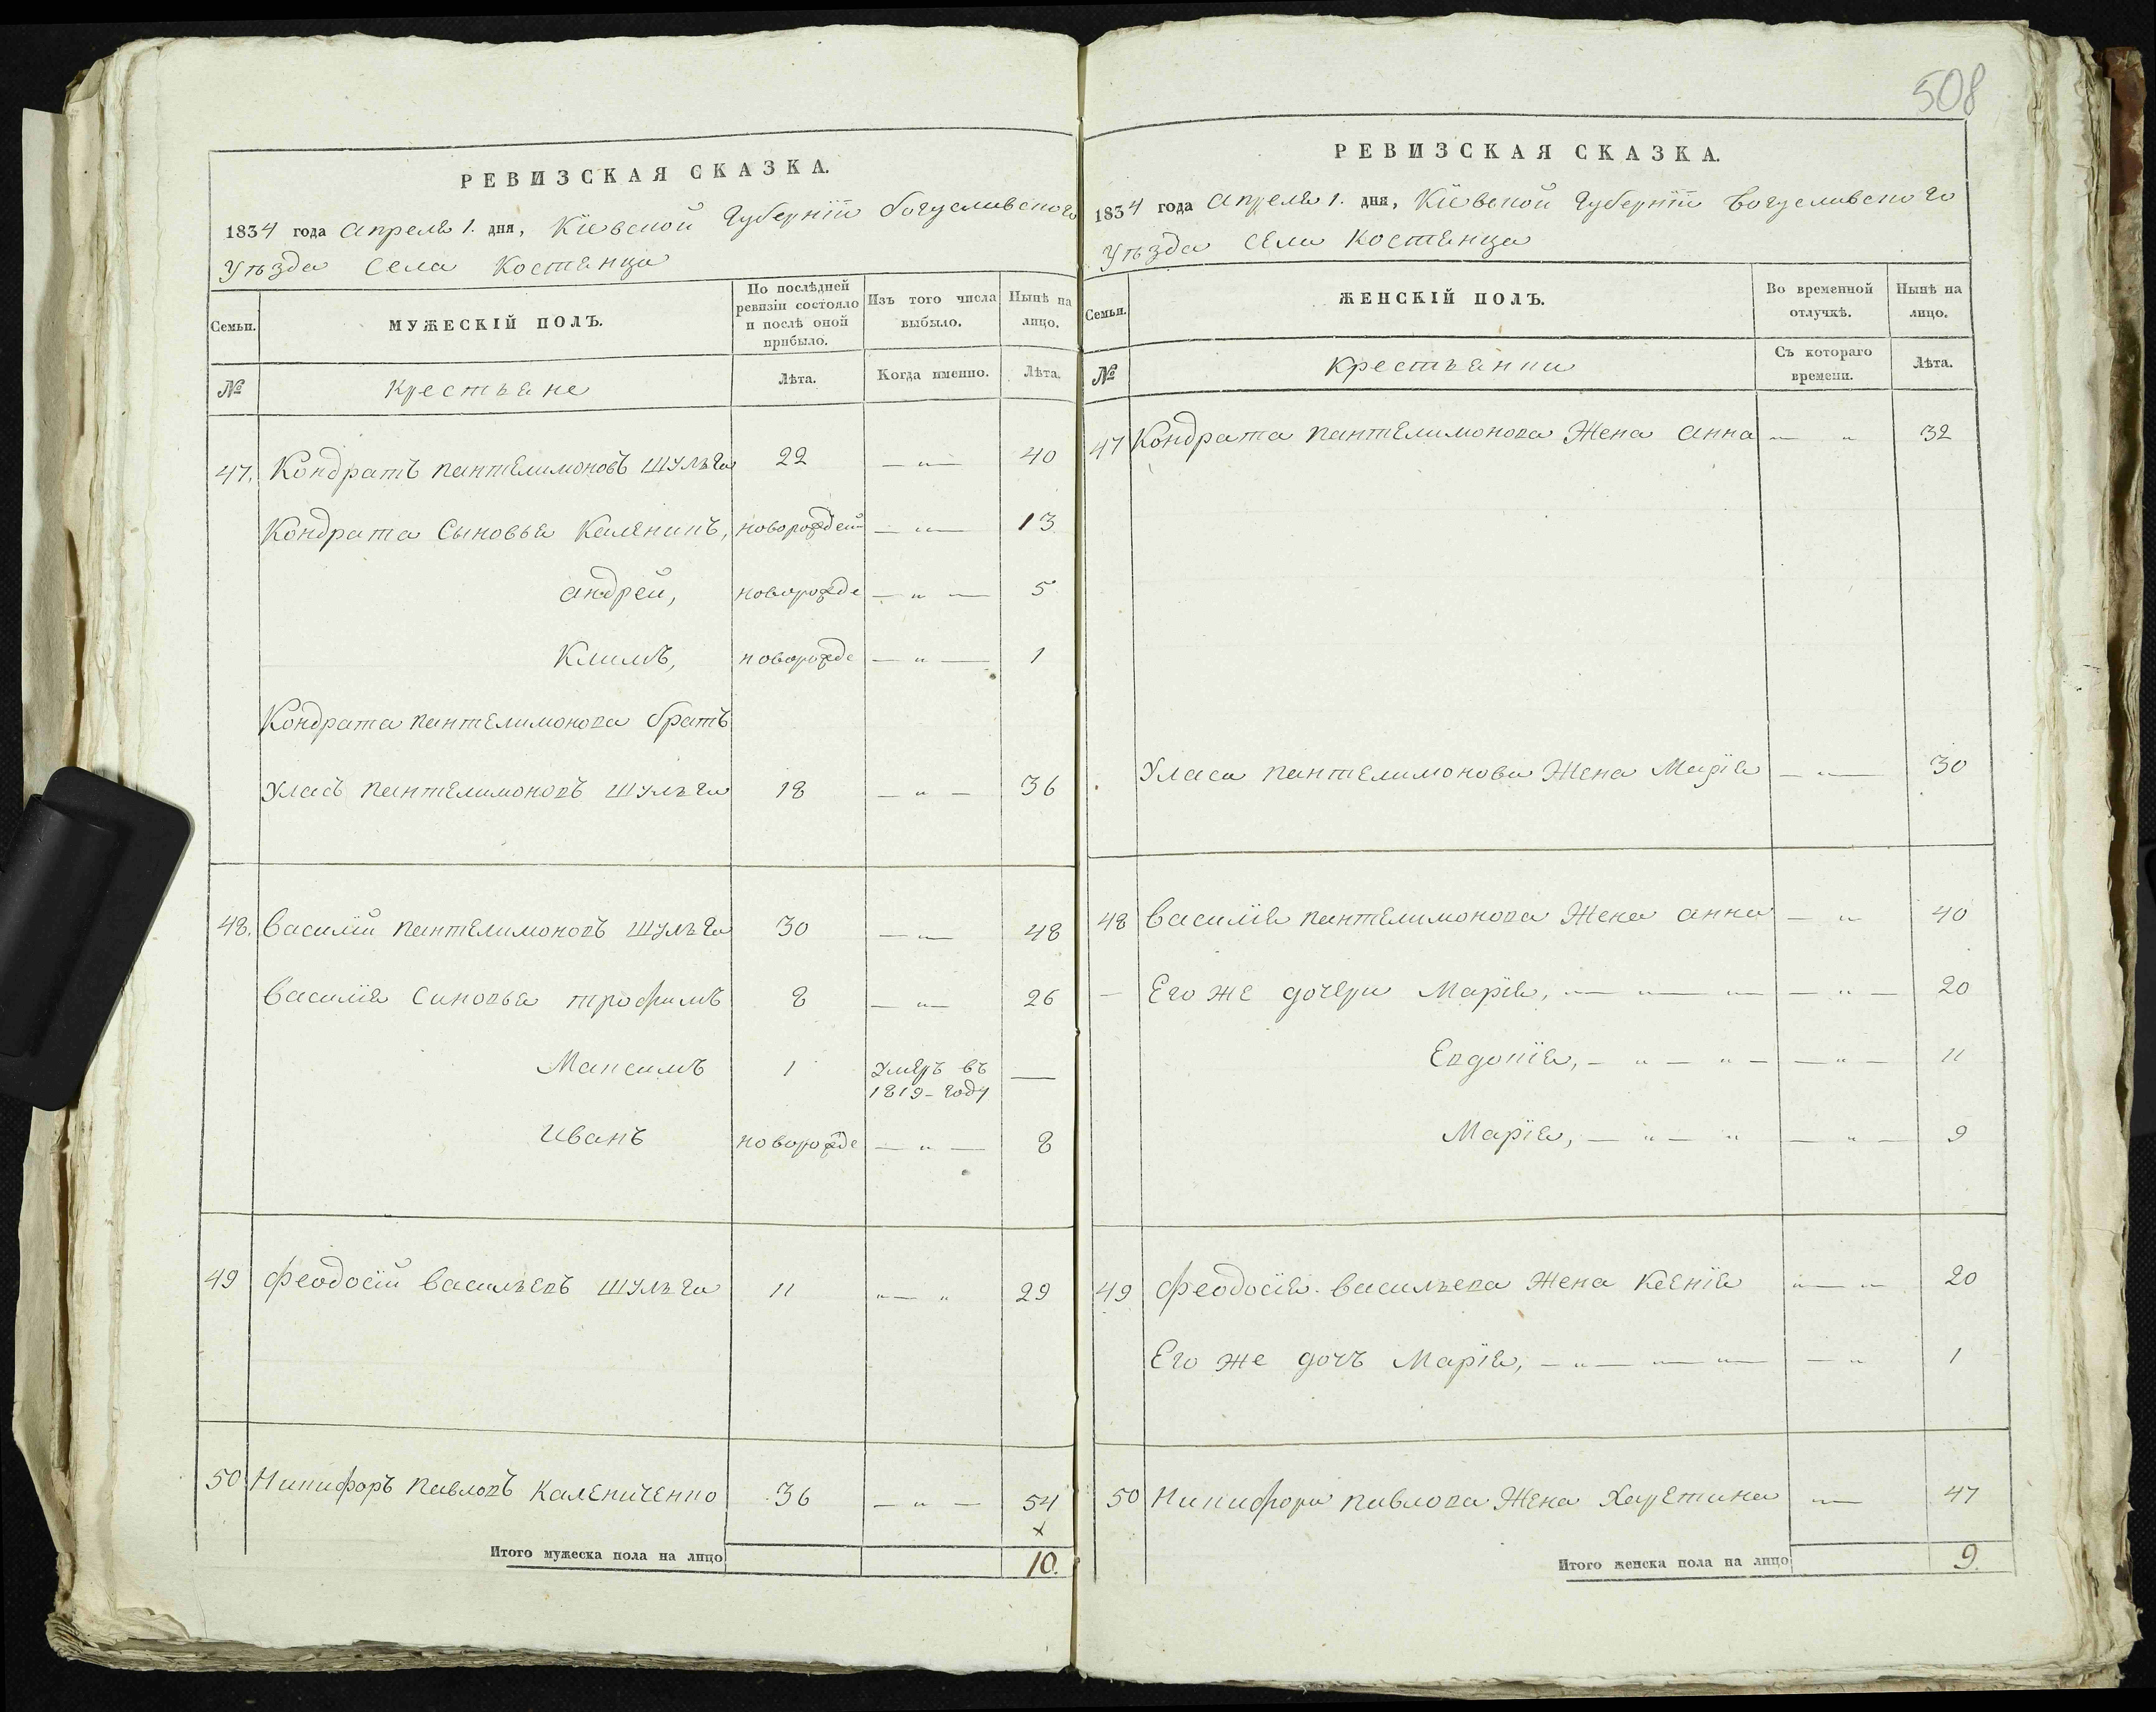 508
РЕВИЗСКАЯ СКАЗКА.
1834 года Апреля 1. дня, Кіевской Губерніи Богуславского
Уѣзда Села Костянца
Семьи.
МУЖЕСКІЙ ПОЛЪ.
По послѣдней ревизіи состояло и послѣ оной прибыло.
Изъ того числа выбыло.
Нынѣ на лицо.
№
Крестьяне
Лѣта.
Когда именно.
Лѣта.
47. Кондратъ Пантелимоновъ Шульга 22 — " — 40
Кондрата Сыновья Каленикъ, новорожден — " — 13
Андрей, новорожде — " — 5
Климъ, новорожде — " — 1
Кондрата Пантелимонова братъ
Уласъ Пантелимоновъ Шульга 18 — " — 36
48. Василій Пантелимоновъ Шульга 30 — " — 48
Василія Синовья Трофимъ 8 — " — 26
Максимъ 1 Умеръ въ —
1819 - году
Иванъ новорожде — " — 8
49 Феодосій Васильевъ Шульга 11 " — " 29
50 Никифоръ Павловъ Калениченко 36 — " — 54
х
Итого мужеска пола на лицо 10.
РЕВИЗСКАЯ СКАЗКА.
1834 года Апреля 1. дня, Кіевской Губерніи Богуславского
Уѣзда Села Костянца
Семьи.
ЖЕНСКІЙ ПОЛЪ.
Во временной отлучкѣ.
Нынѣ на лицо.
№
Крестьянки
Съ котораго времени.
Лѣта.
47 Кондрата Пантелимонова Жена Анна — " 32
Уласа Пантелимонова Жена Марія — " — 30
48 Василія Пантелимонова Жена Анна — " — 40
— Его же дочери Марія, — " — " — — " — 20
Евдокія, — " — " — — " — 11
Марія, — " — " — " — 9
49 Феодосія Васильева Жена Ксенія " — " — 20
Его же дочъ Марія, — " — " — " — — " 1
50 Никифора Павлова Жена Харетина " — 47
Итого женска пола на лицо 9.